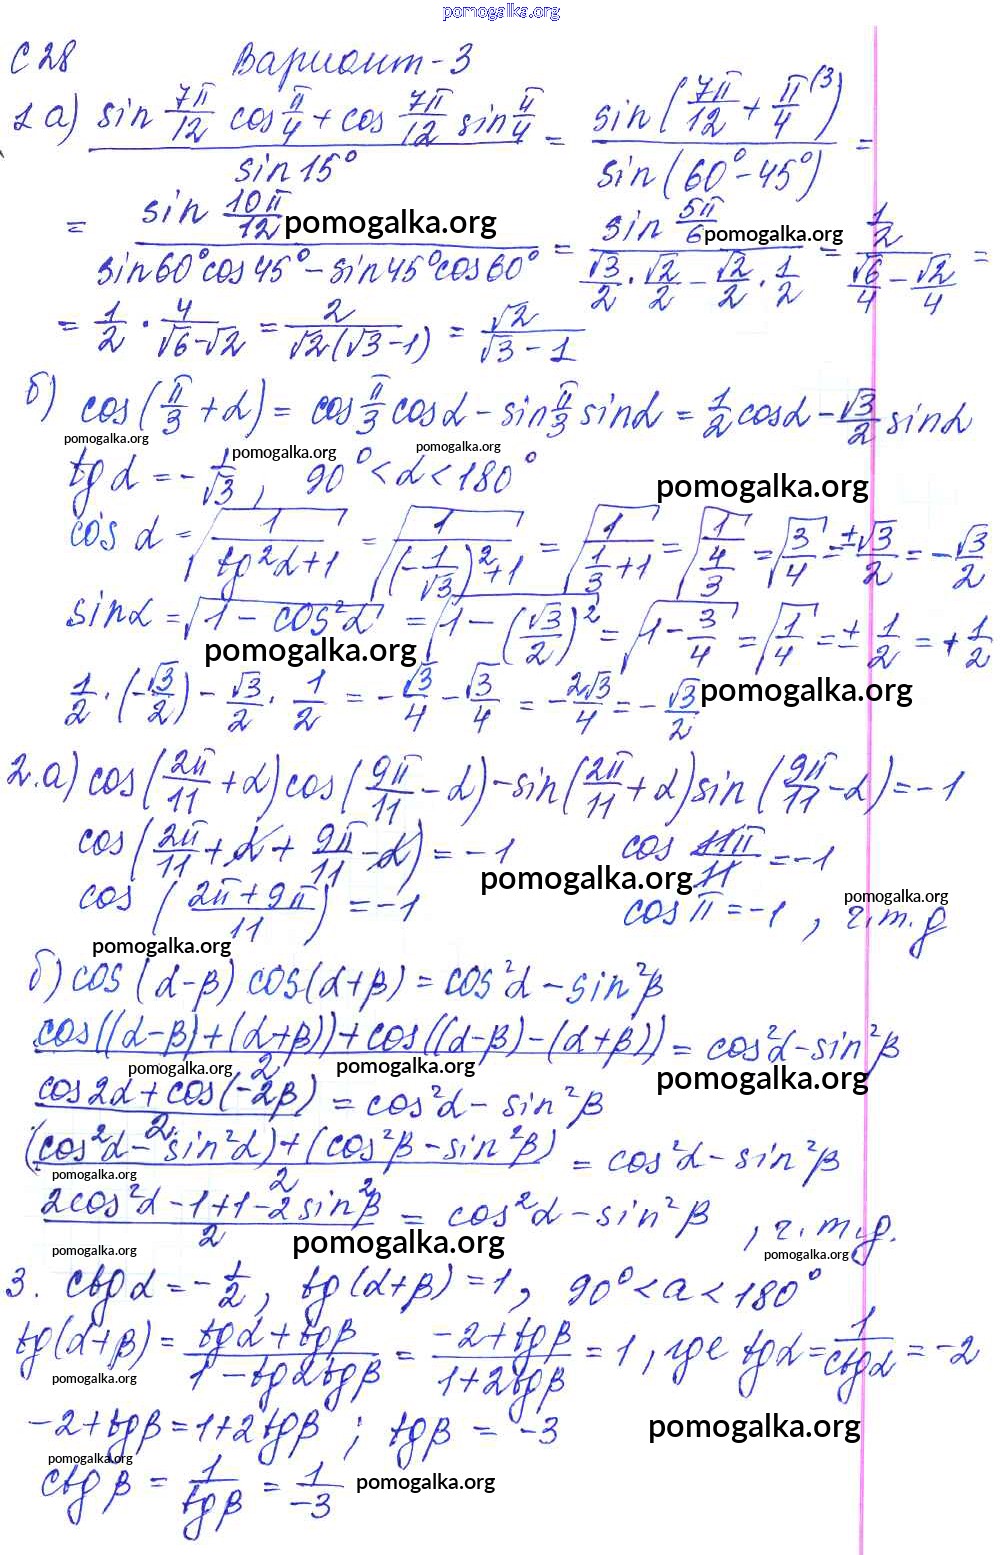 pomogalka.org
С 28 Вариант-3
1 а) (sin 7π/12 cos π/4 + cos 7π/12 sin π/4)/(sin 15°) = (sin(7π/12 + π/4^(3)))/(sin(60°-45°)) =
= (sin 10π/12)/(sin60°cos45° - sin45°cos60°) = (sin 5π/6)/(√3/2 · √2/2 - √2/2 · 1/2) = (1/2)/(√6/4 - √2/4) =
pomogalka.org pomogalka.org
= 1/2 · 4/(√6-√2) = 2/(√2(√3-1)) = √2/(√3-1)
б) cos(π/3 + α) = cos π/3 cosα - sin π/3 sinα = 1/2 cosα - √3/2 sinα
pomogalka.org pomogalka.org pomogalka.org
tg α = -1/√3, 90° < α < 180°
pomogalka.org
cos α = √(1/(tg²α+1)) = √(1/((-1/√3)²+1)) = √(1/(1/3+1)) = √(1/(4/3)) = √(3/4) = ±√3/2 = -√3/2
sinα = √(1 - cos²α) = √(1-(√3/2)²) = √(1-3/4) = √(1/4) = ±1/2 = +1/2
pomogalka.org
1/2 · (-√3/2) - √3/2 · 1/2 = -√3/4 - √3/4 = -2√3/4 = -√3/2
pomogalka.org
2. а) cos(2π/11 + α)cos(9π/11 - α) - sin(2π/11 + α)sin(9π/11 - α) = -1
cos(2π/11 + α + 9π/11 - α) = -1 cos 11π/11 = -1
pomogalka.org
cos((2π+9π)/11) = -1 cos π = -1, ч.т.д
pomogalka.org pomogalka.org
б) cos(α-β) cos(α+β) = cos²α - sin²β
(cos((α-β)+(α+β)) + cos((α-β)-(α+β)))/2 = cos²α - sin²β
pomogalka.org pomogalka.org pomogalka.org
(cos2α + cos(-2β))/2 = cos²α - sin²β
((cos²α - sin²α) + (cos²β - sin²β))/2 = cos²α - sin²β
pomogalka.org
(2cos²α - 1 + 1 - 2sin²β)/2 = cos²α - sin²β, ч.т.д.
pomogalka.org pomogalka.org pomogalka.org
3. ctgα = -1/2, tg(α+β) = 1, 90° < a < 180°
tg(α+β) = (tgα + tgβ)/(1 - tgαtgβ) = (-2 + tgβ)/(1+2tgβ) = 1, где tgα = 1/ctgα = -2
pomogalka.org
-2+tgβ = 1+2tgβ ; tgβ = -3
pomogalka.org
pomogalka.org
ctg β = 1/tgβ = 1/-3
pomogalka.org